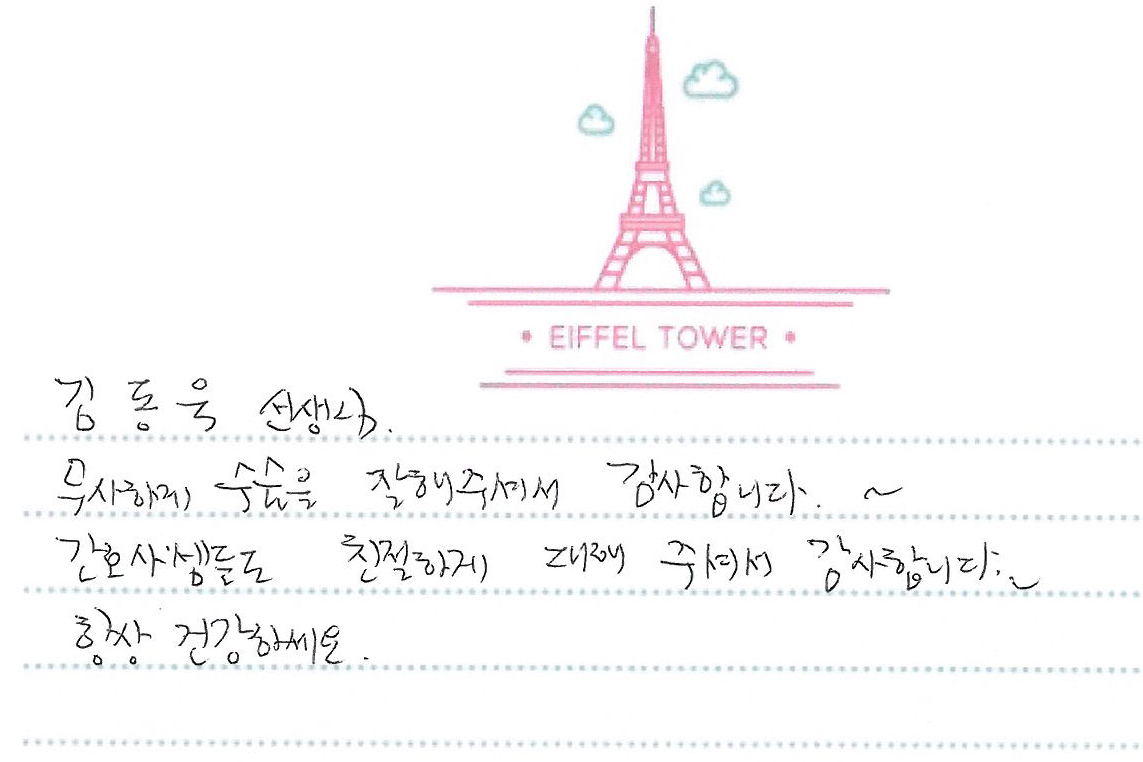 • EIFFEL TOWER •
김동욱 선생님.
무사하게 수술을 잘해주셔서 감사합니다. ~
간호사쌤들도 친절하게 대해 주셔서 감사합니다.~
항상 건강하세요.